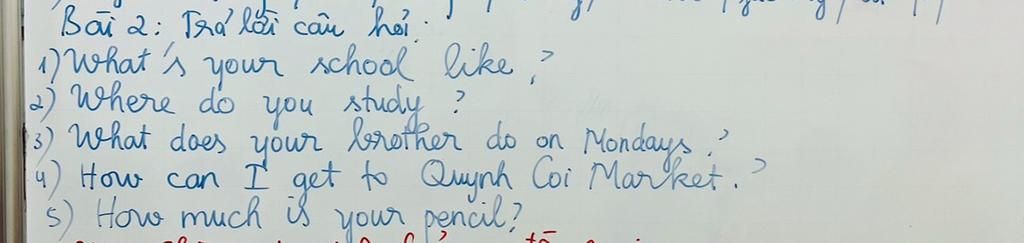 Bài 2: Trả lời câu hỏi:
1) What's your school like?
2) Where do you study?
3) What does your brother do on Mondays?
4) How can I get to Quynh Coi Market.?
5) How much is your pencil?